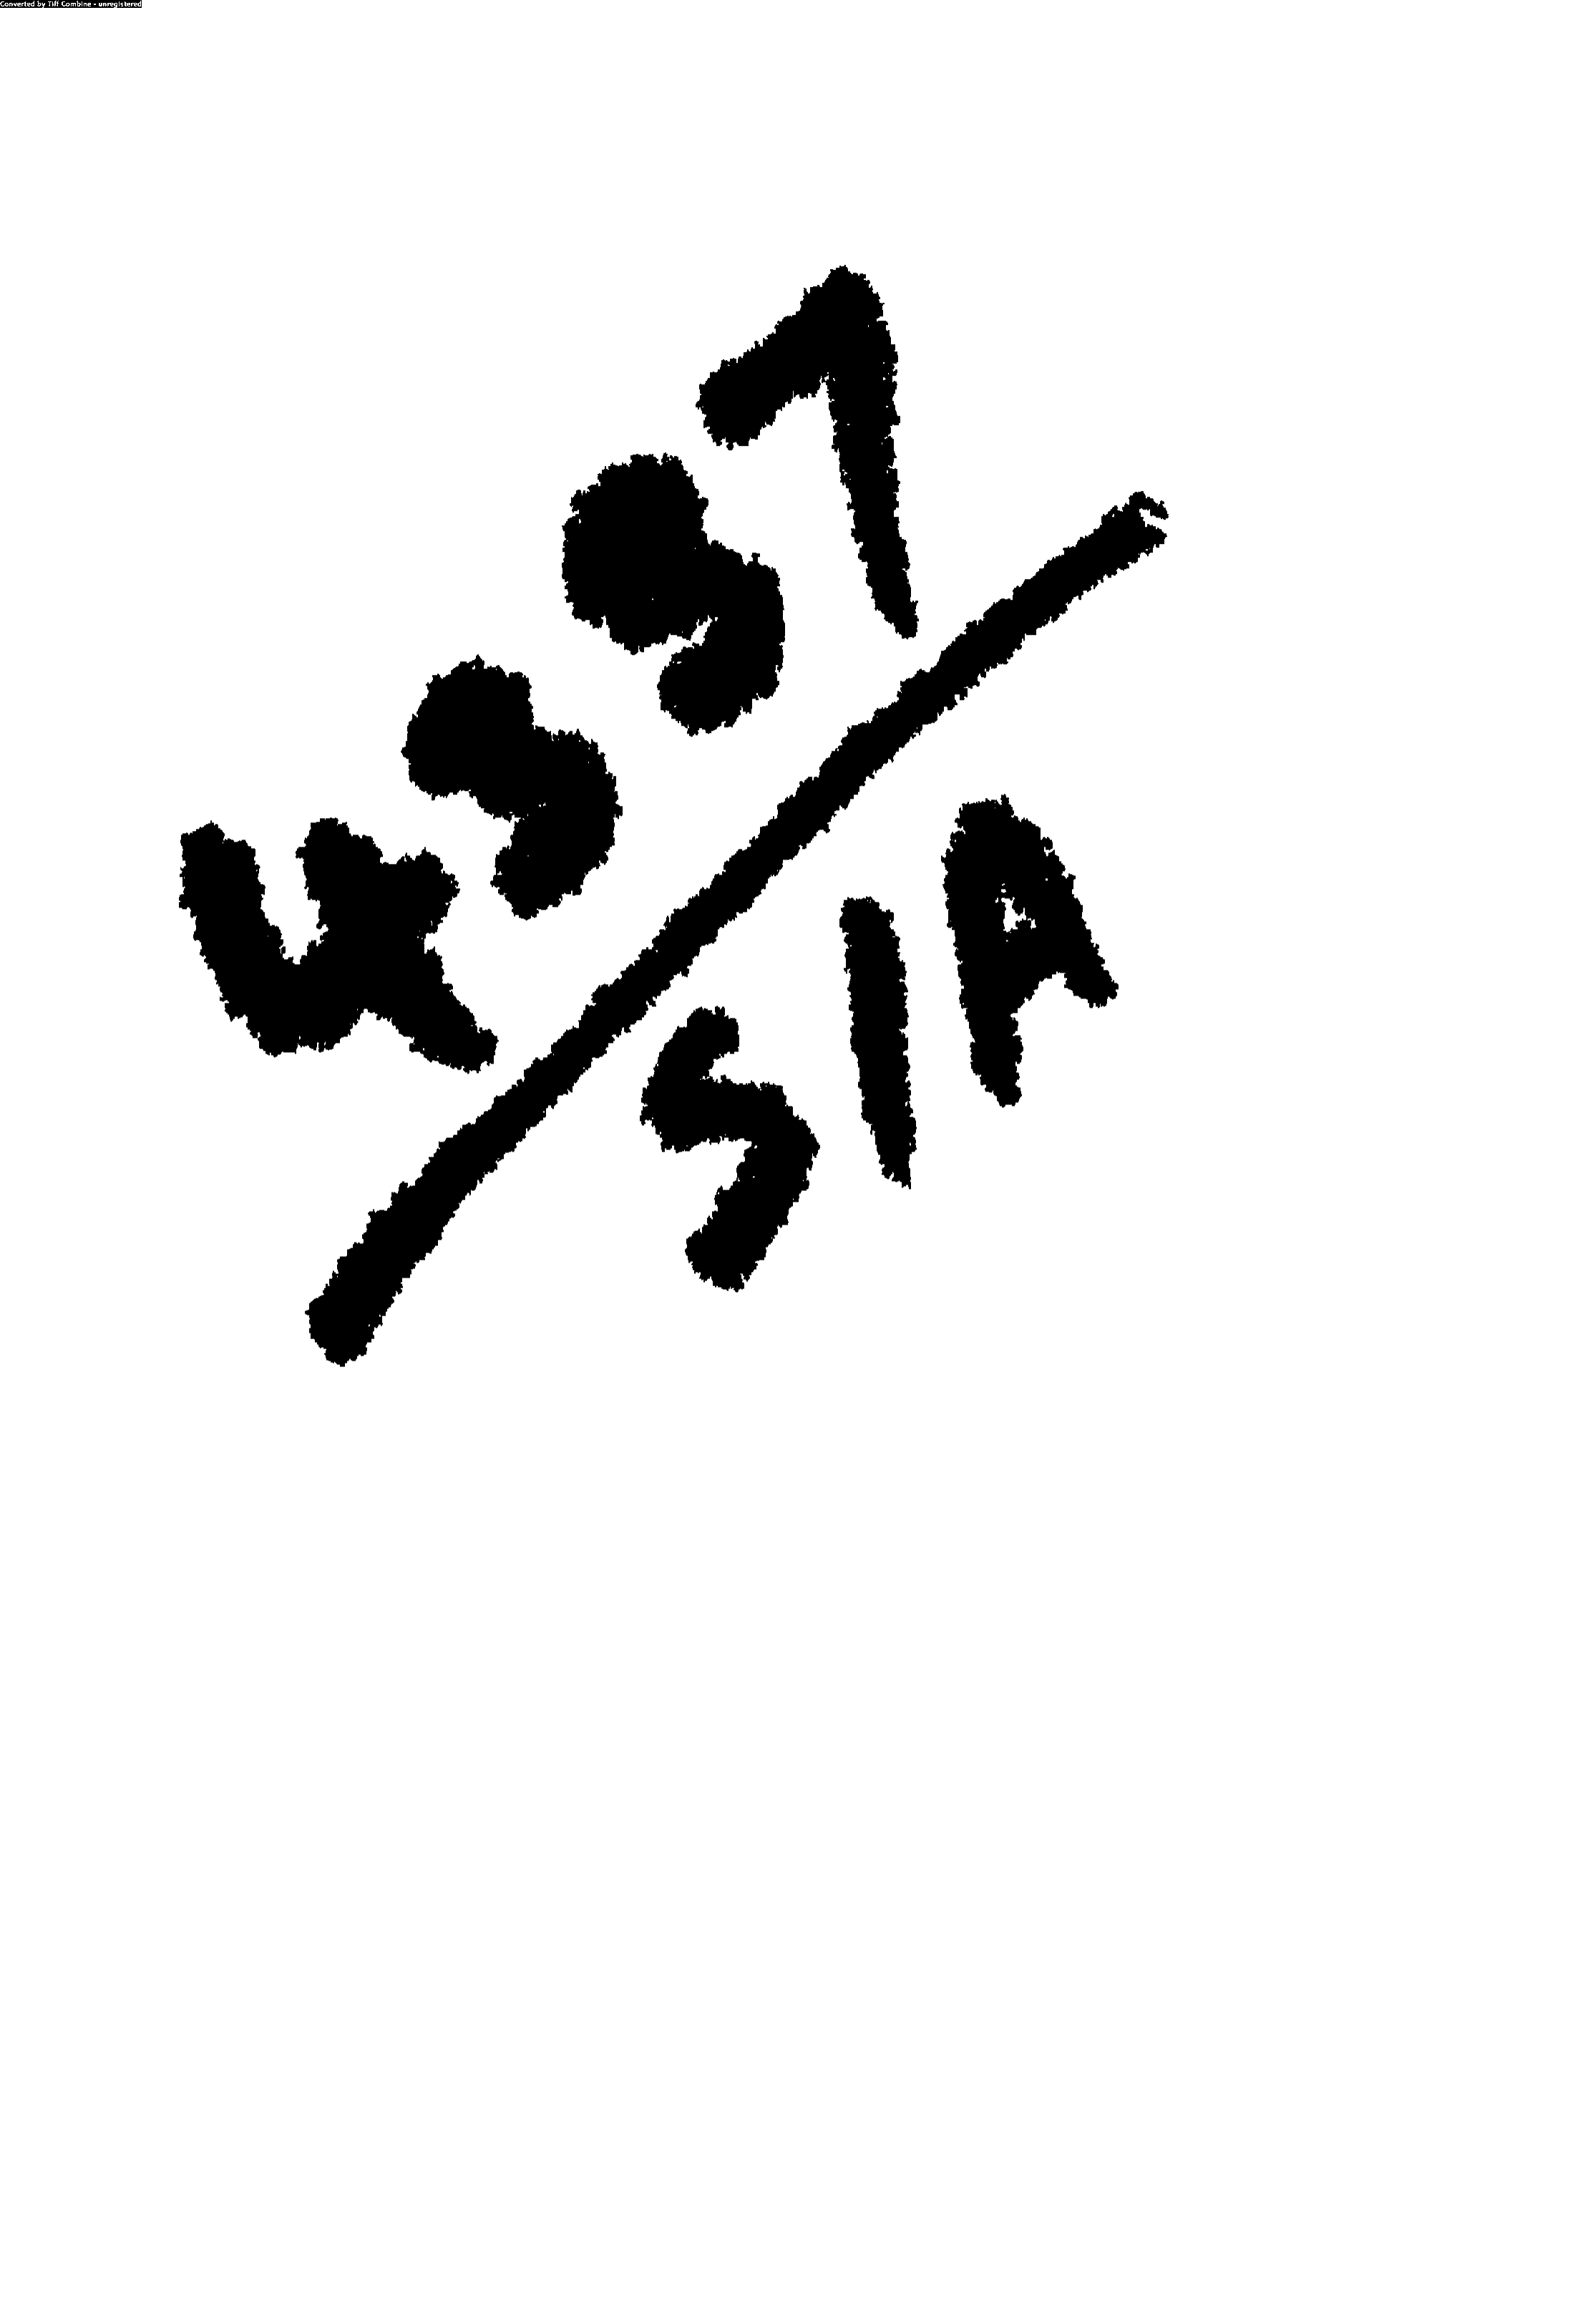 Converted by Tiff Combine - unregistered
4557
51A